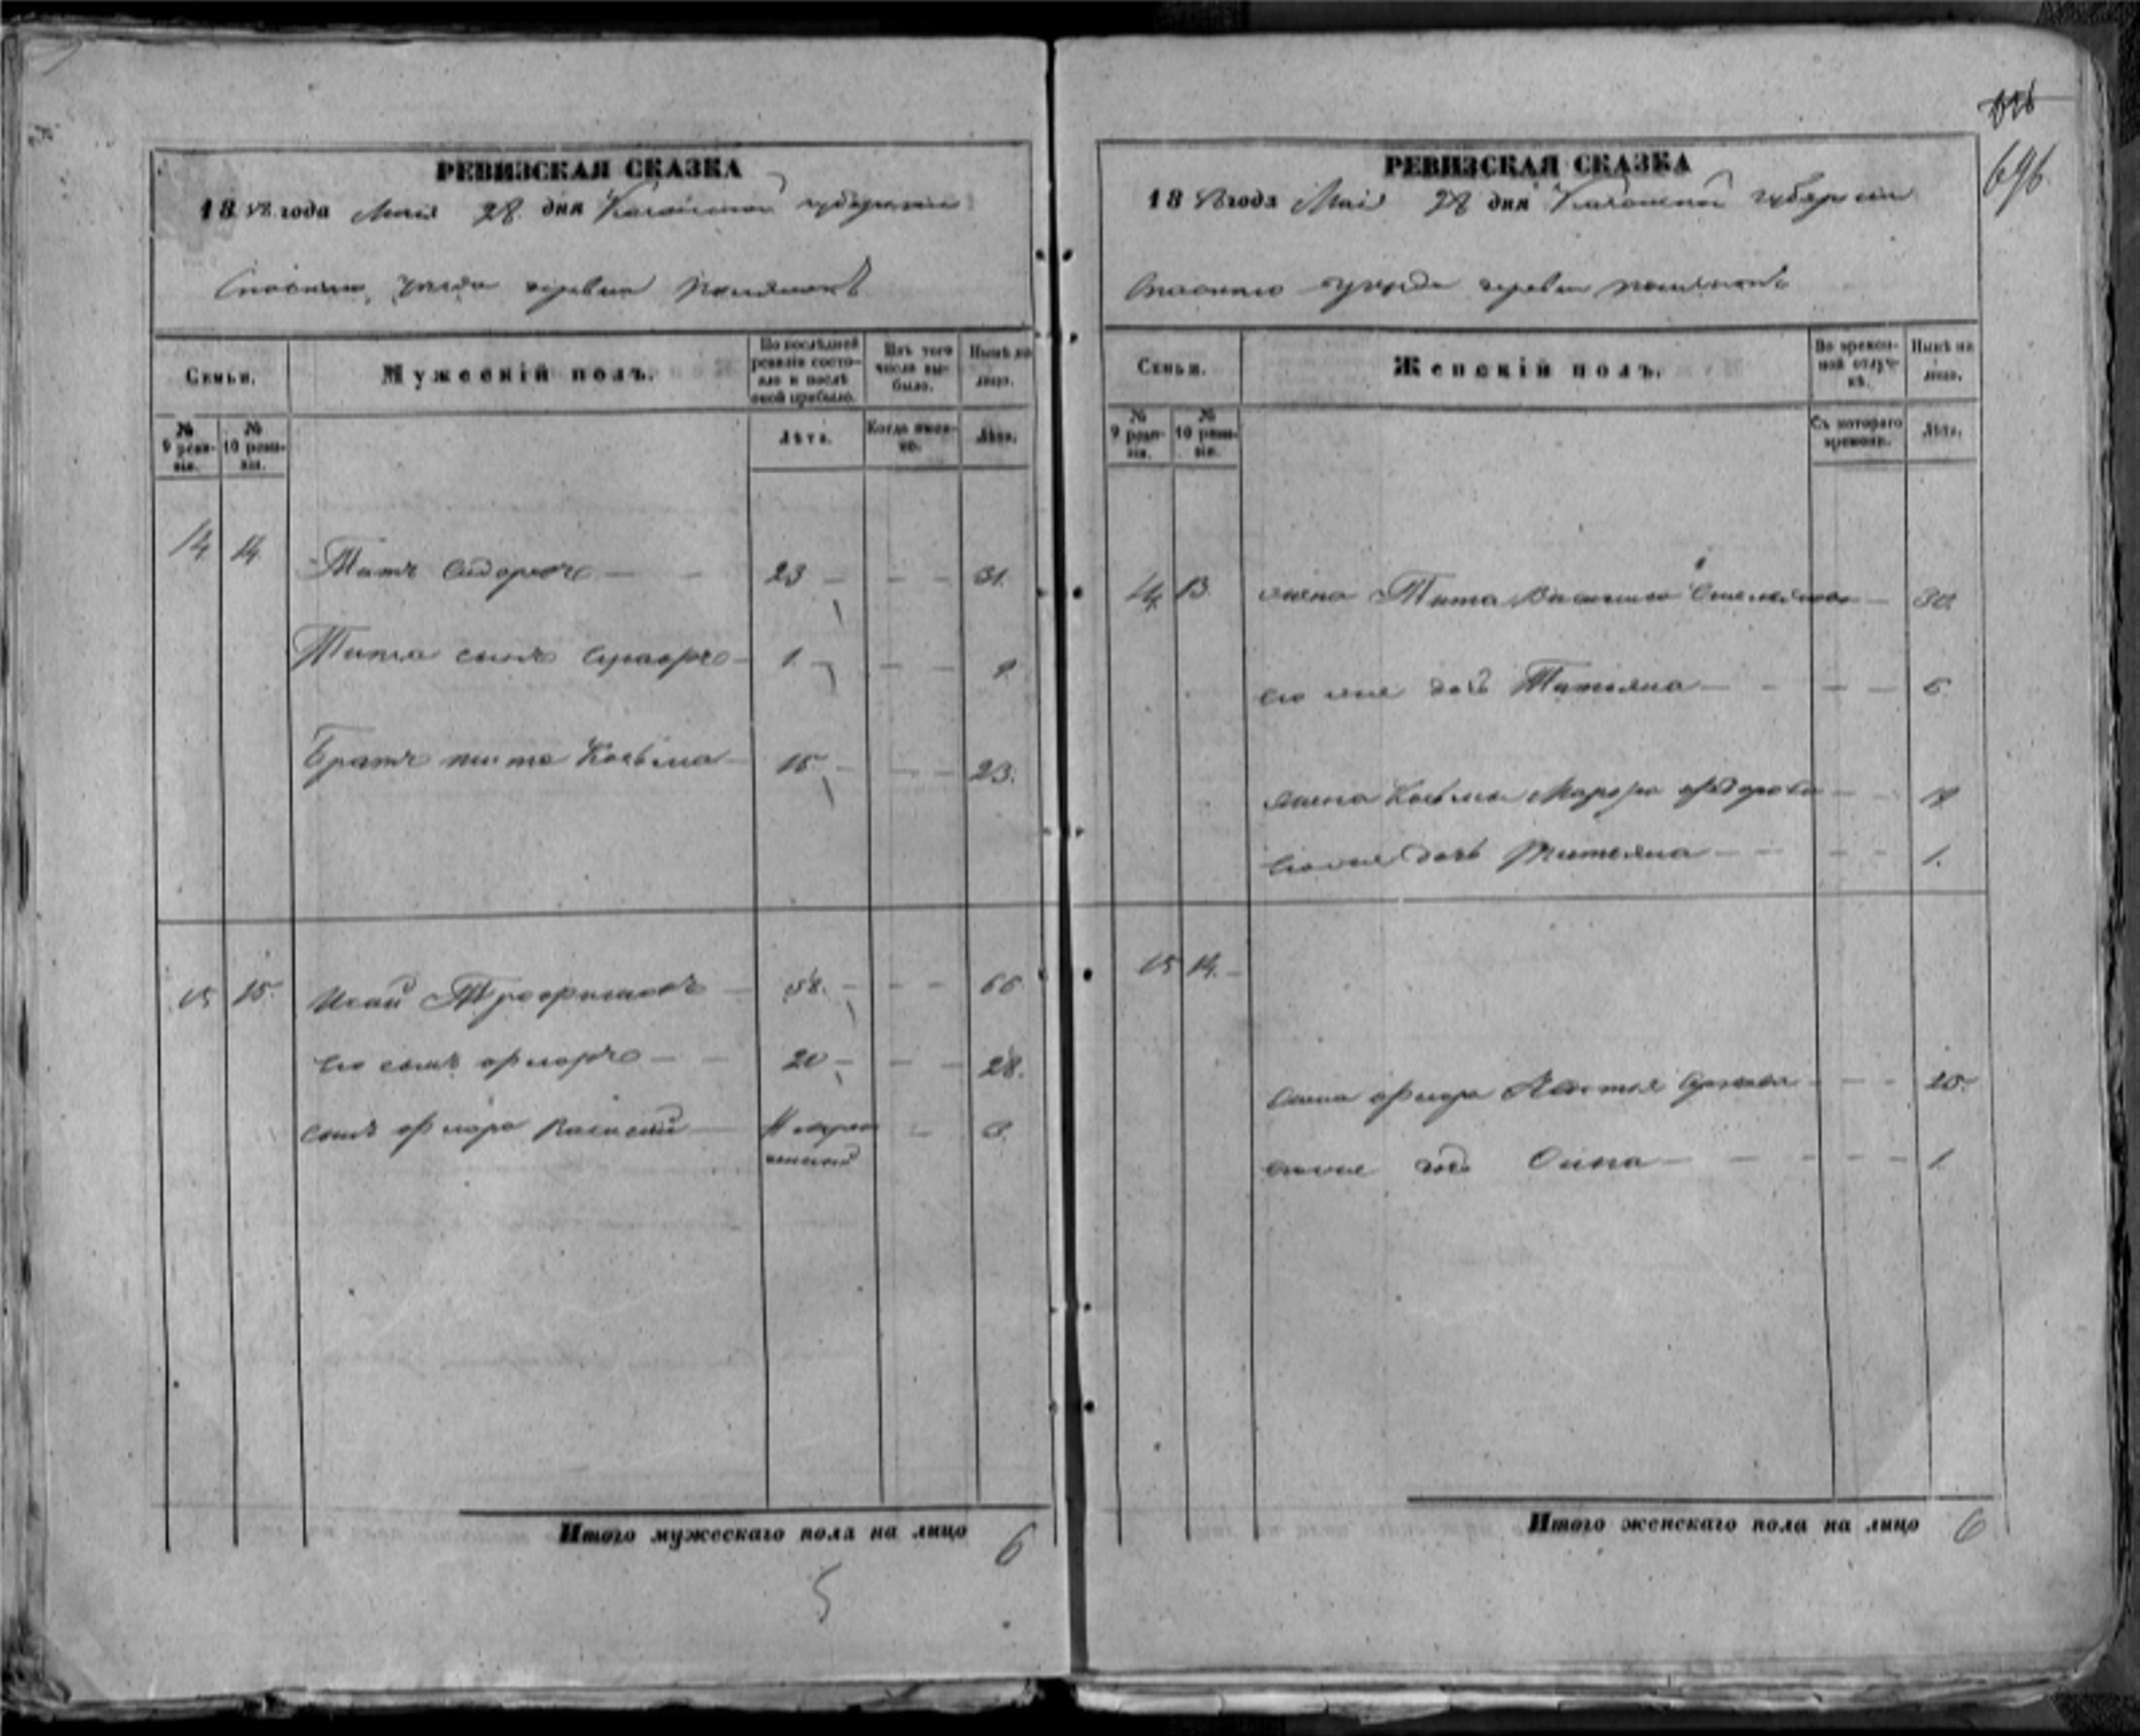 РЕВИЗСКАЯ СКАЗКА
1858 года Мая 28 дня Казанской губернии
Спаского уезда деревни
Семьи.
Мужескій полъ.
По послѣдней ревизіи состояло и послѣ оной прибыло.
Изъ того числа выбыло.
Нынѣ на лицо.
№ 9 ревизіи.
№ 10 ревизіи.
Лѣта.
Когда именно.
Лѣта.
14 14 Титъ Сидоровъ — — 23 — — — 31.
Тита сынъ — 1. — — — 9
Братъ тита Козьма — 15. — — — 23.
15 15. Исай Трофимовъ — 58. — — — 66.
Его сынъ Флоръ — — 20 — — — 28.
Сынъ Флора Василий — Новорожденный — 6.
Итого мужескаго пола на лицо 6
5
696.
РЕВИЗСКАЯ СКАЗКА
1858 года Мая 28 дня Казанской губернии
Спаского уезда деревни
Семьи.
Женскій полъ.
Во временной отлучкѣ.
Нынѣ на лицо.
№ 9 ревизіи.
№ 10 ревизіи.
Съ котораго времени.
Лѣта.
14. 13 жена Тита — 30.
его же дочь Татьяна — — — — 6.
жена Козьмы Марфа Федорова — —
его же дочь Татьяна — — — — 1.
15 14. —
жена Флора — — — 25.
его же дочь Анна — — — — — 1
Итого женскаго пола на лицо 6